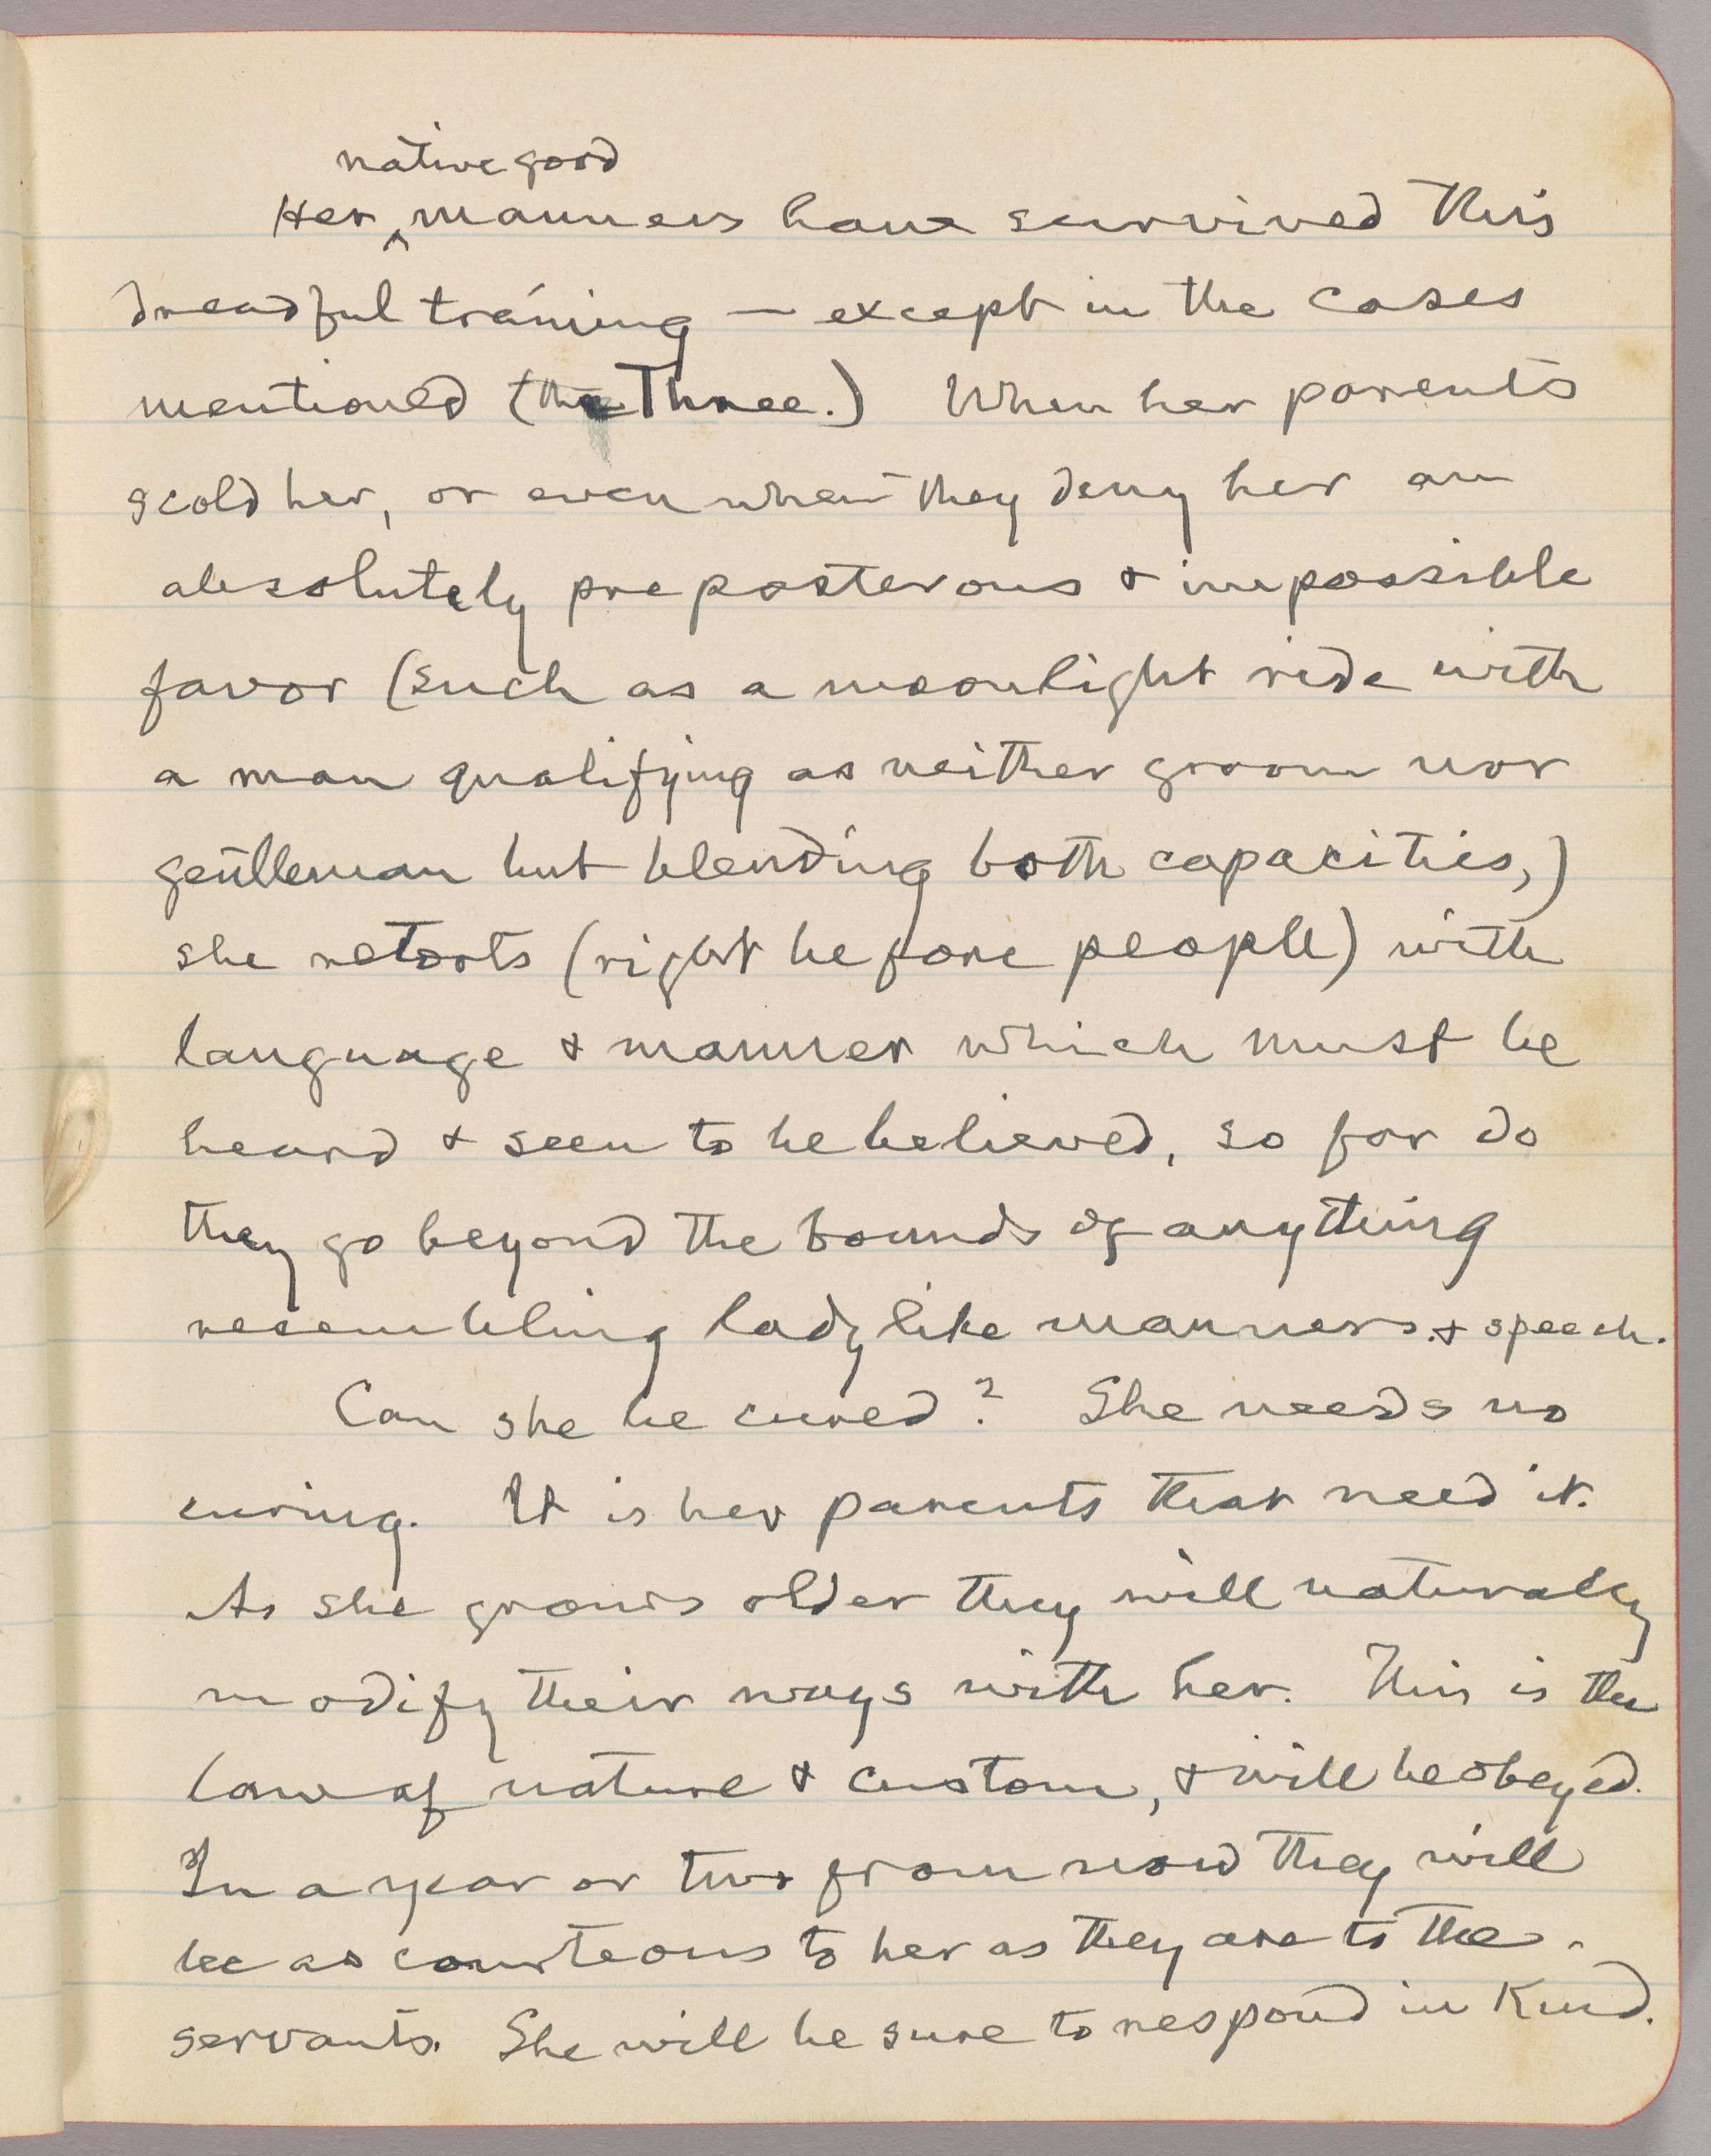 native good
Her ‸ manners have survived this
dreadful training — except in the cases
mentioned (the Three.) When her parents
scold her, or even when they deny her an
absolutely preposterous & impossible
favor (such as a moonlight ride with
a man qualifying as neither groom nor
gentleman but blending both capacities,)
she retorts (right before people) with
language & manner which must be
heard & seen to be believed, so far do
they go beyond the bounds of anything
resembling ladylike manners. & speech.
Can she be cured? She needs no
curing. It is her parents that need it.
As she grows older they will naturally
modify their ways with her. This is the
law of nature & custom, & will be obeyed.
In a year or two from now they will
be as courteous to her as they are to the
servants. She will be sure to respond in kind.